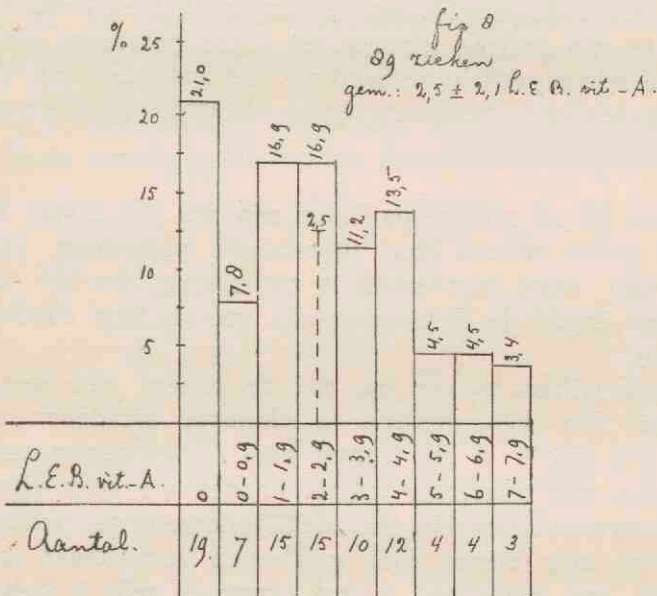 fig 8
89 zieken
gem.: 2,5 ± 2,1 L.E.B. vit-A.
% 25
20
15
10
5
21,0
7,8
16,9
16,9
2,5
11,2
13,5
4,5
4,5
3,4
L.E.B. vit.-A. 0 0-0,9 1-1,9 2-2,9 3-3,9 4-4,9 5-5,9 6-6,9 7-7,9
Aantal. 19. 7 15 15 10 12 4 4 3